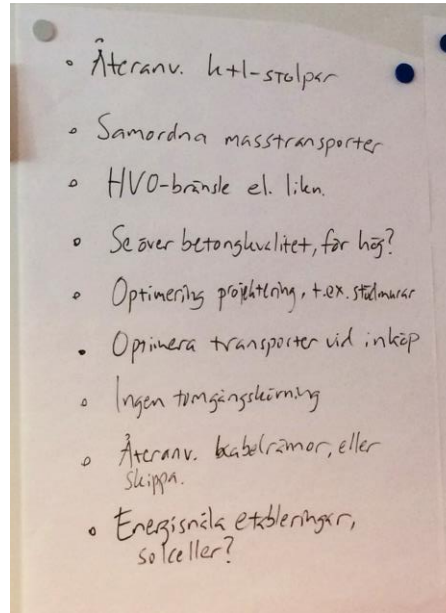 • Återanv. ktl-stolpar
• Samordna masstransporter
• HVO-bränsle el. likn.
• Se över betongkvalitet, för hög?
• Optimering projektering, t.ex. stödmurar
• Optimera transporter vid inköp
• Ingen tomgångskörning
• Återanv. kabelrännor, eller
skippa.
• Energisnåla etableringar,
solceller?